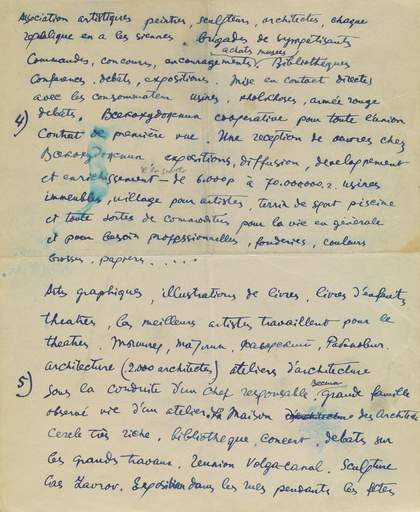 Association artistiques peintres, sculpteurs, architectes, chaque
république en a les siennes. brigades de sympatisants
achats musées
Commandes, concours, encouragements, Bibliothèques
Conferance, debats, expositions. Mise en contact directes
avec les consommateurs usines, Kolkhozes, armée rouge
4) debats, Всекохудожник cooperative pour toute l'union
Contrat de première vue. Une reception de œuvres chez
Всекохудожник, expositions, diffusion, developpement
et enrichissement — de 6.000 p à 70.000.000 r. usines
immeubles, village pour artistes, terrin de sport piscine
et toute sortes de commodités pour la vie en générale
et pour besoin professionnelles, fonderies, couleurs
brosses, papiers . . . . .
Arts graphiques, illustrations de livres, livres d'enfants
theatres, les meilleurs artistes travaillent pour le
theatres.
architecture (2.000 architectes) ateliers d'architecture
5) Sous la conduite d'un chef responsable, grande famille
observé vie d'un atelier. La Maison des Architecte
Cercle très riche, bibliotheque, concert, debats sur
les grands travaux, reunion Volga-canal, Sculpture
Cas Zavrov. Exposition dans les rues pendants les fêtes